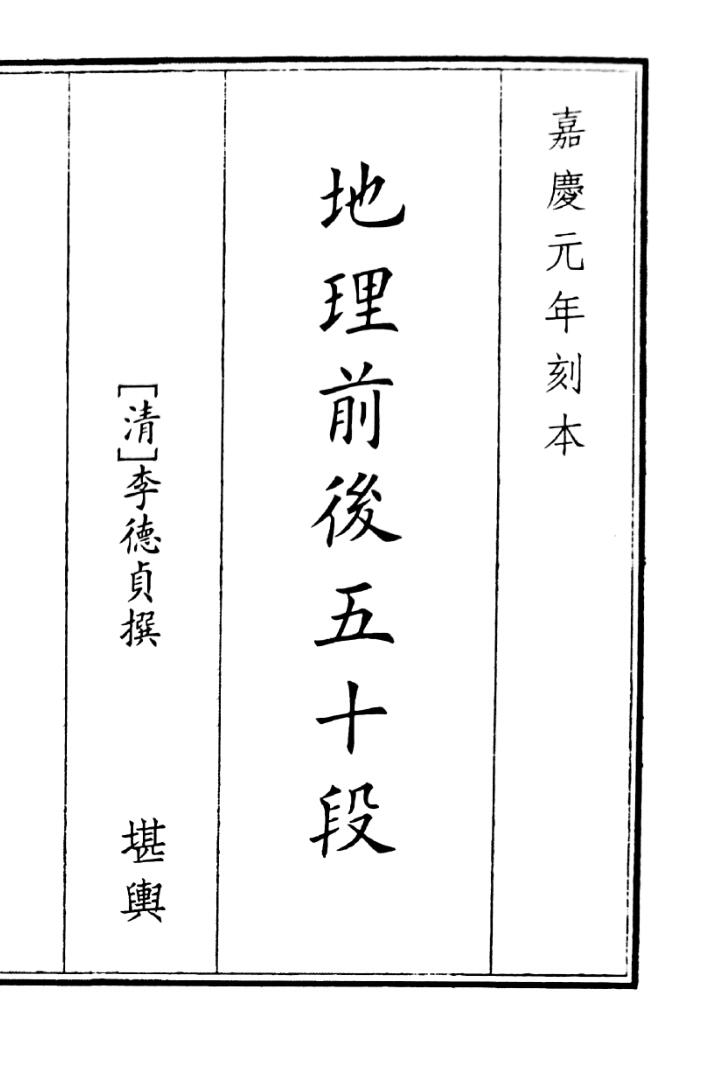 嘉慶元年刻本
地理前後五十段
[清]李德貞撰 堪輿